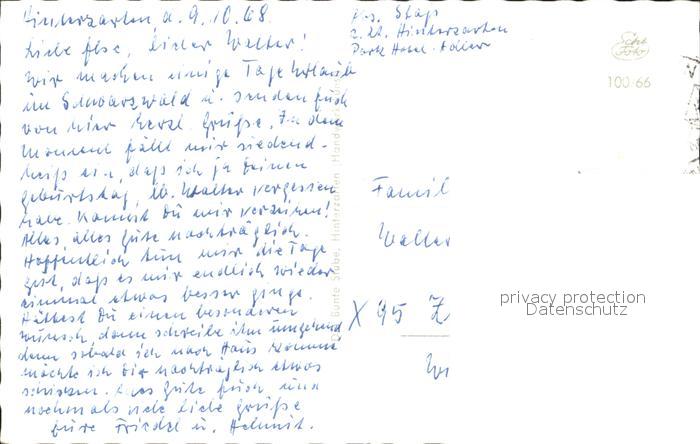 Hinterzarten d. 9.10.68.
Liebe Ilse, lieber Walter!
Wir machen einige Tage Urlaub
im Schwarzwald u. senden Euch
von hier herzl. Grüße. In dem
Moment fällt mir siedend-
heiß ein, daß ich ja Deinen
Geburtstag, lb. Walter vergessen
habe. Kannst Du mir verzeihen!
Alles, alles Gute nachträglich.
Hoffentlich tun mir die Tage
gut, daß es mir endlich wieder
einmal etwas besser ginge.
Hättest Du einen besonderen
Wunsch, dann schreibe ihn umgehend
denn sobald ich nach Haus komme
möchte ich Dir nachträglich etwas
schicken. Alles Gute Euch und
nochmals viele liebe Grüße
Eure Friedel u. Helmut.
Abs. Stap
z. Zt. Hinterzarten
Park Hotel Adler
Schö
Foto
100 66
Bunte Stube, Hinterzarten
Famil
Walter
X 95 Z
privacy protection
Datenschutz